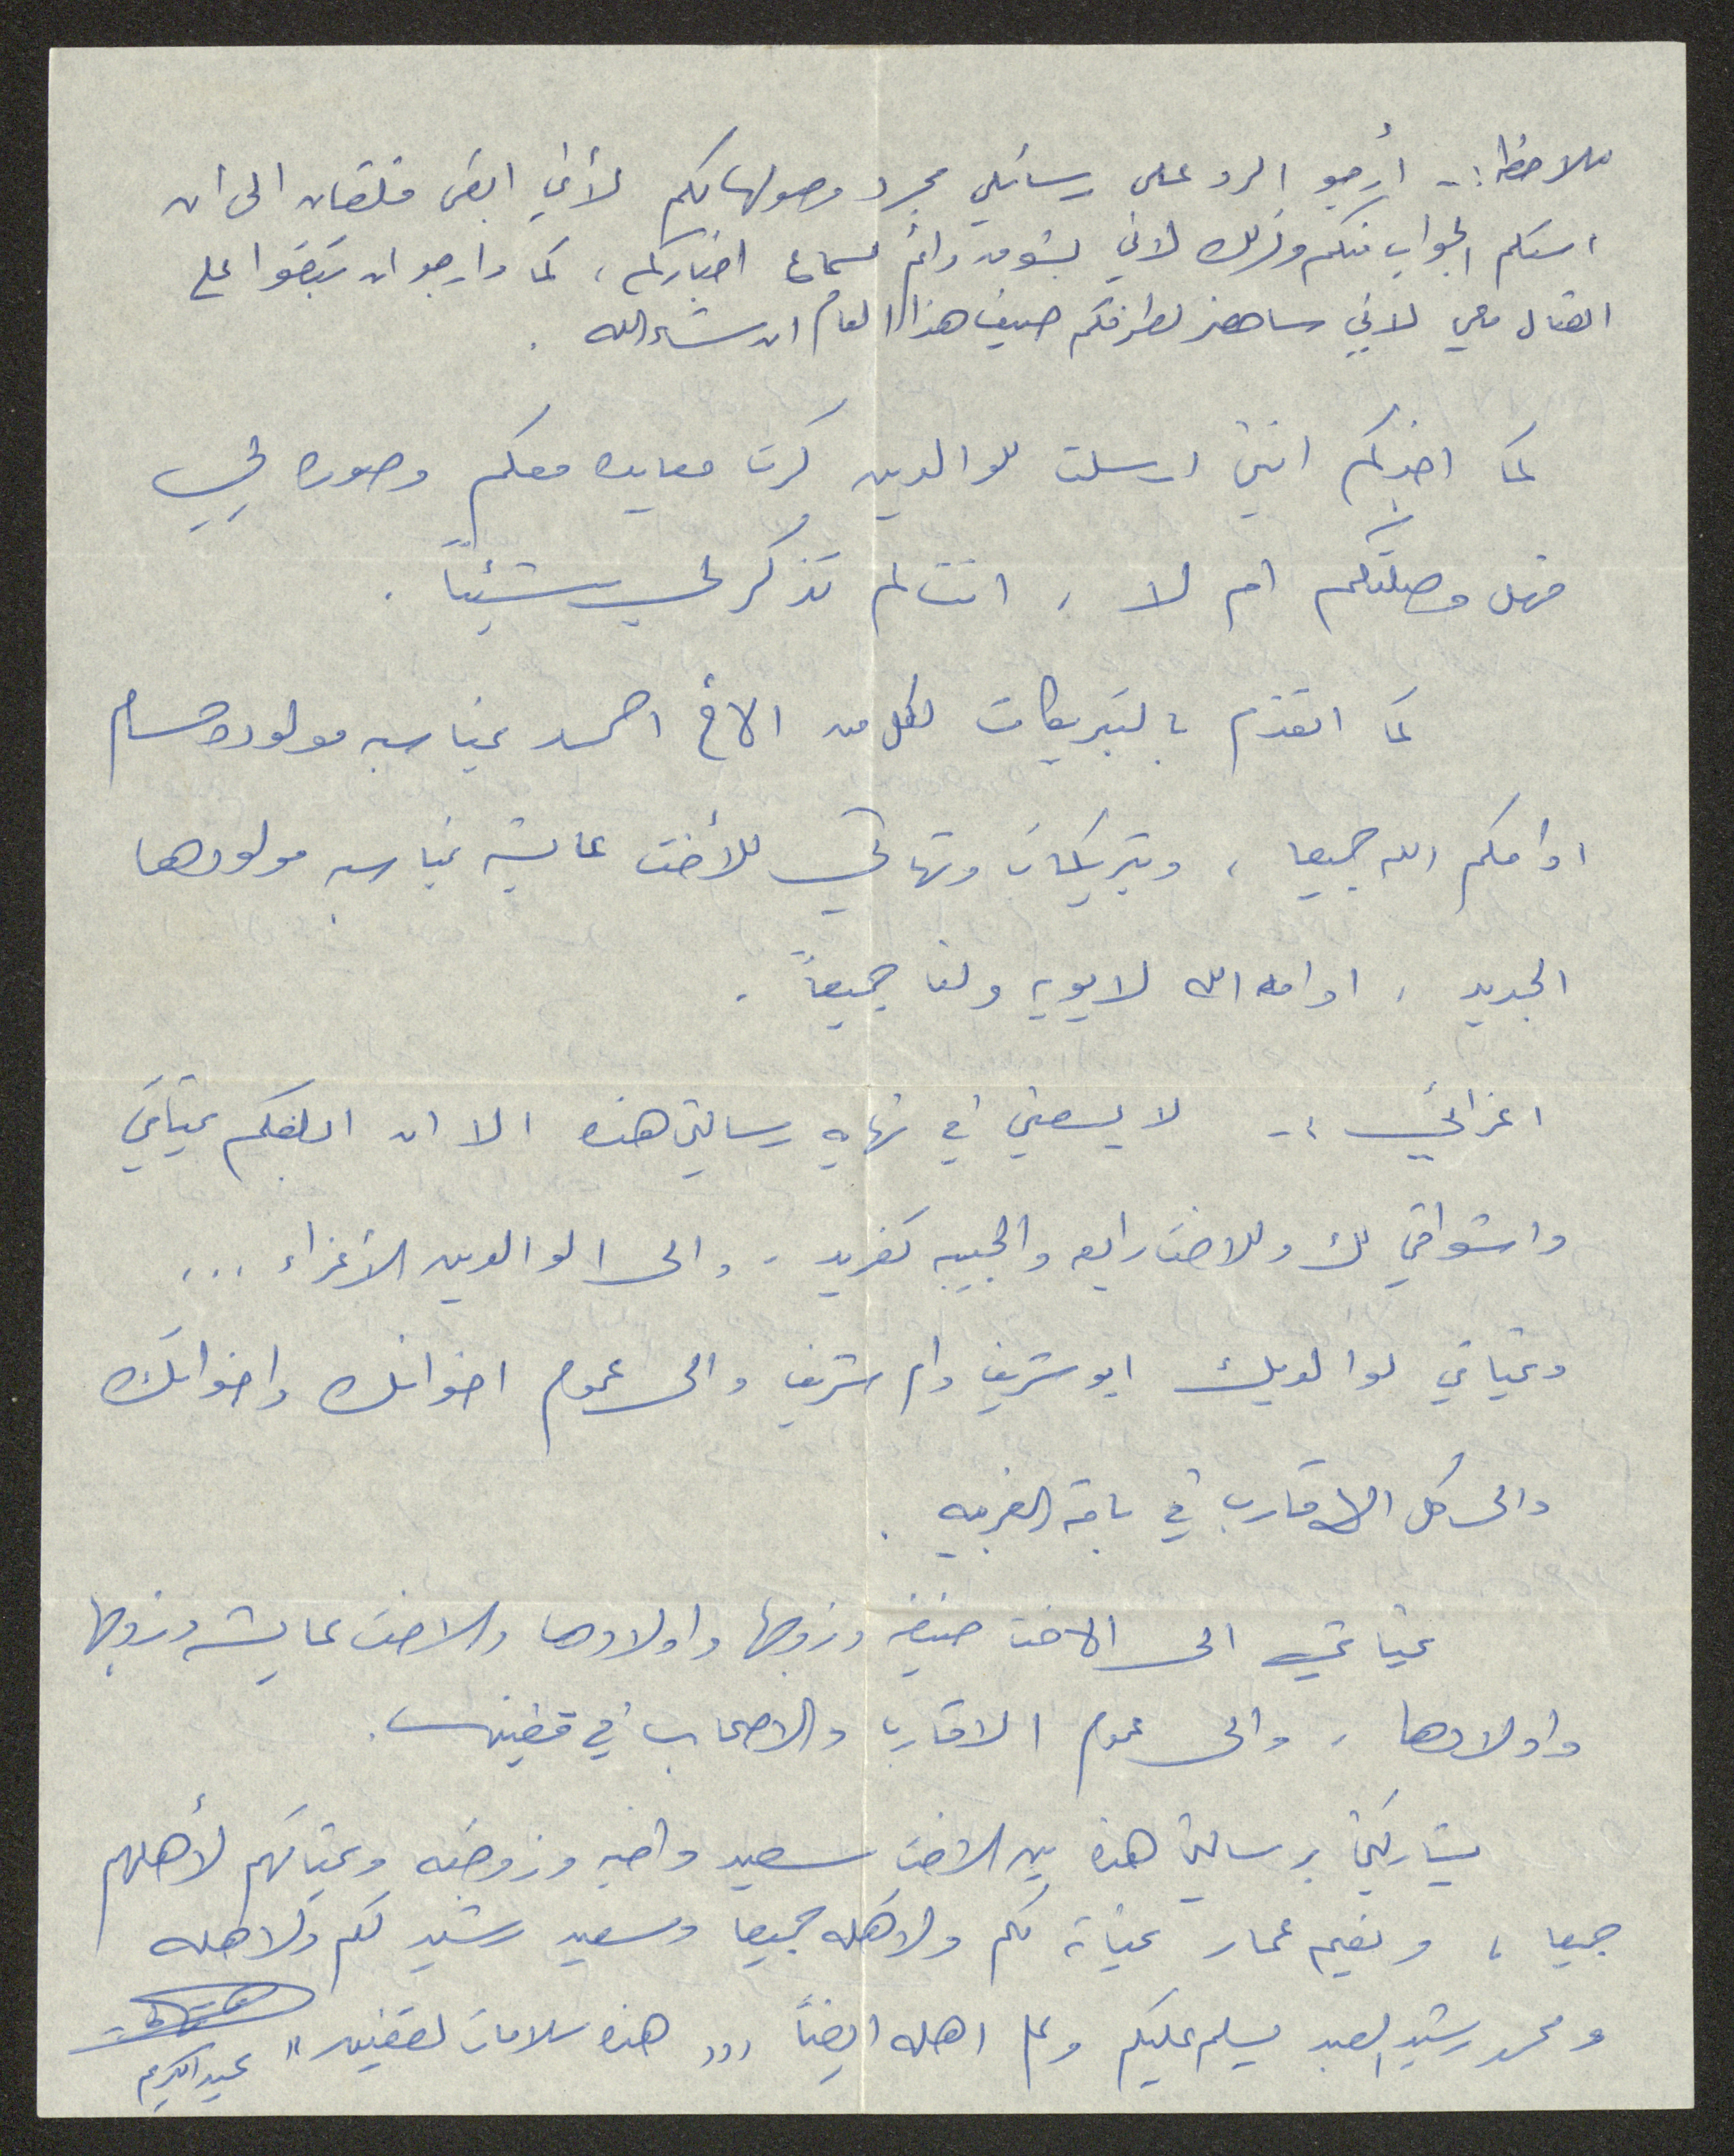 ملاحظة :- أرجو الرد على رسائلي بمجرد وصولها لكم لأني ابقى قلقان الى ان
استلم الجواب منكم وذلك لاني بشوق دائم لسماع اخباركم ، كما وارجو ان تبقوا على
اتصال معي لاني ساحضر لطرفكم صيف هذا العام ان شاء الله .
كما اخبركم انني ارسلت للوالدين كرت معايده معكم وصوره لي
فهل وصلتكم ام لا ، انت لم تذكر لي شيئاً .
كما اتقدم بالتبريكات لكل من الاخ احمد بمناسبه مولوده حسام
ادامكم الله جميعا ، وتبريكات وتهاني للأخت عايشه بمناسبه مولودها
الجديد ، ادامه الله لابويه ولنا جميعاً .
اعزائي :- لا يسعني في نهايه رسالتي هذه الا ان ابلغكم تحياتي
واشواقي لك وللاخت رابعه والحبيبه تغريد ، والى الوالدين الأعزاء ...
وتحياتي لوالديك ابو شريف وام شريف والى عموم اخوانك واخواتك
والى كل الاقارب في باقة الغربيه .
تحياتي الى الاخت حنيفه وزوجها واولادها والاخت عايشه وزوجها
واولادها ، والى عموم الاقارب والاصحاب في قفين .
يشاركني برسالتي هذه بن الاخت سعيد واخيه وزوجته وتحياتهم لأهلهم
جميعا ، ونعيم عمار تحياته لكم ولاهله جميعا وسعيد رشيد لكم ولاهله
ومحمد رشيد العبد يسلم عليكم وعلى اهله ايضاً ,,, هذه سلامات لقفين "
عبد الكريم